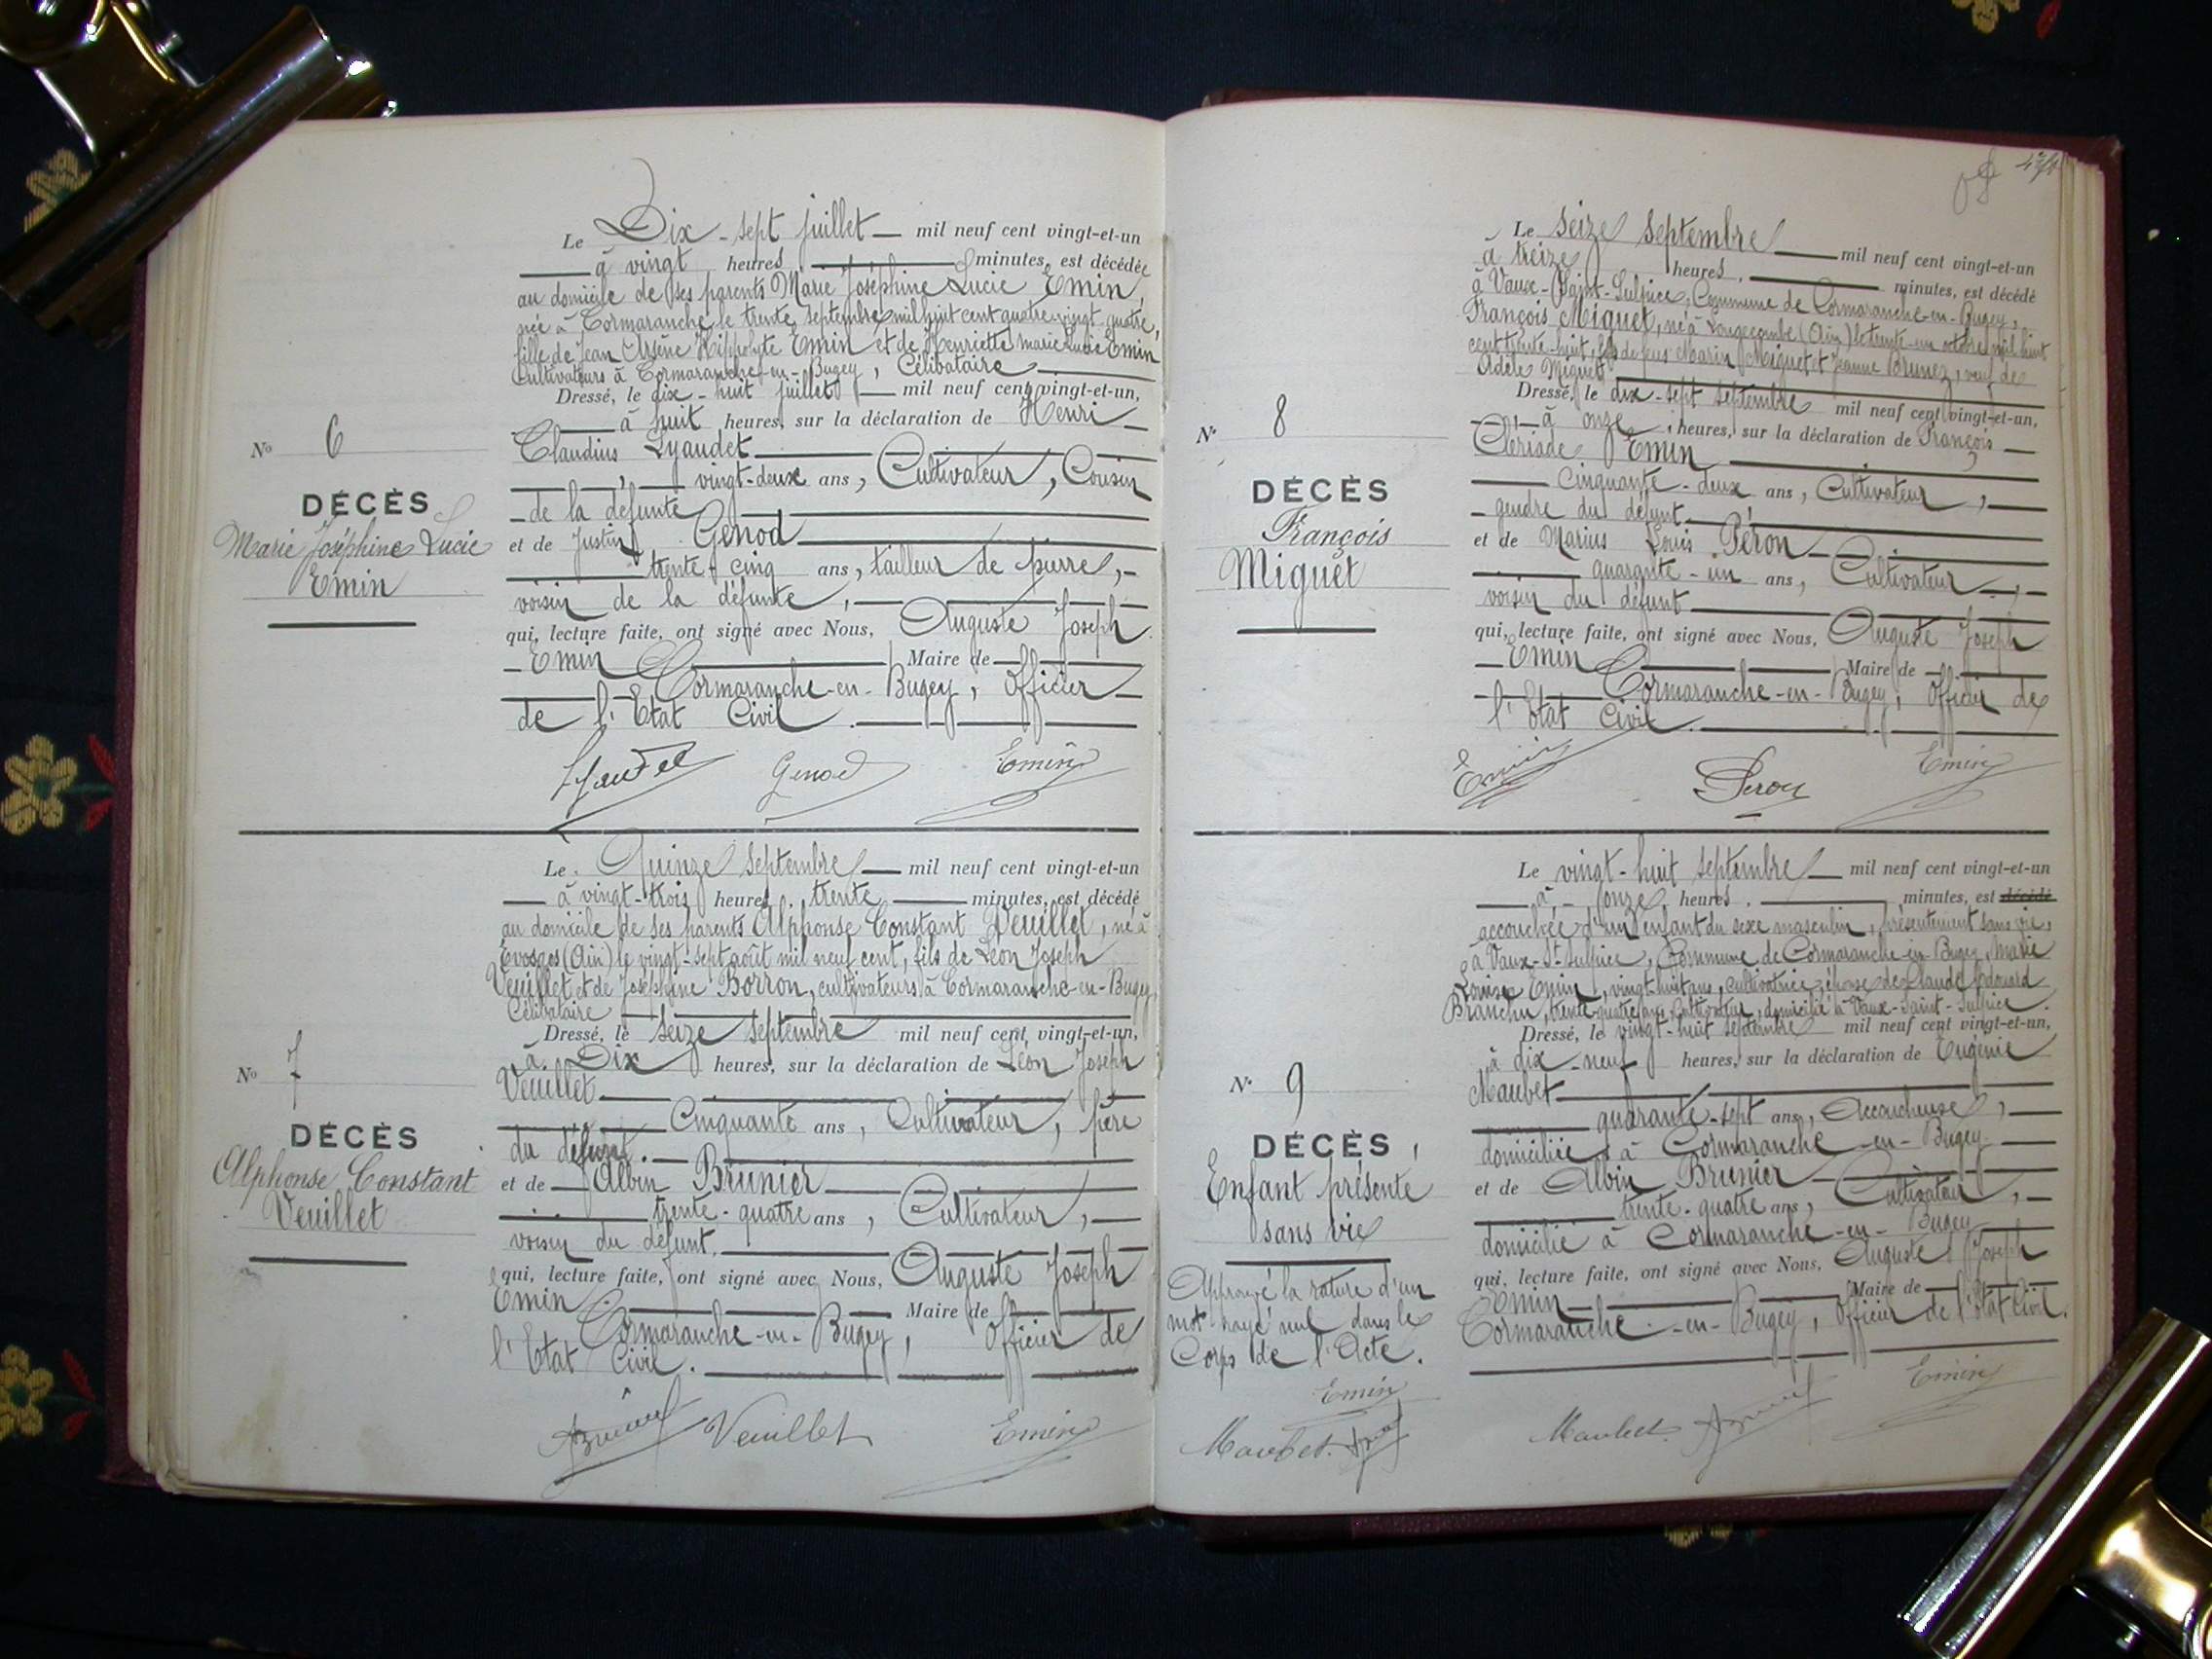 N° 6
DÉCÈS
Marie Joséphine Lucie
Emin
Le Dix-sept juillet mil neuf cent vingt-et-un
à vingt heures, minutes, est décédée
au domicile de ses parents Marie Joséphine Lucie Emin,
née à Cormaranche le trente septembre mil huit cent quatre-vingt-quatre,
fille de Jean Arsène Hippolyte Emin et de Henriette Marie Lucie Emin
Cultivateurs à Cormaranche-en-Bugey, Célibataire
Dressé, le dix-huit juillet mil neuf cent vingt-et-un,
à huit heures, sur la déclaration de Henri
Claudius Lyaudet
, vingt-deux ans, Cultivateur, Cousin
de la défunte
et de Justin Genod
trente-cinq ans, tailleur de pierre,
voisin de la défunte,
qui, lecture faite, ont signé avec Nous, Auguste Joseph
Emin Maire de
Cormaranche-en-Bugey, Officier
de l'Etat Civil.
Lyaudet Genod Emin
N° 7
DÉCÈS
Alphonse Constant
Veuillet
Le Quinze septembre mil neuf cent vingt-et-un
à vingt-trois heures, trente minutes, est décédé
au domicile de ses parents Alphonse Constant Veuillet, né à
Evosges (Ain) le vingt-sept août mil neuf cent, fils de Léon Joseph
Veuillet et de Joséphine Borron, cultivateurs à Cormaranche-en-Bugey,
Célibataire
Dressé, le seize septembre mil neuf cent vingt-et-un,
à Dix heures, sur la déclaration de Léon Joseph
Veuillet
Cinquante ans, Cultivateur, père
du défunt.
et de Albin Brunier
trente-quatre ans, Cultivateur,
voisin du défunt.
qui, lecture faite, ont signé avec Nous, Auguste Joseph
Emin Maire de
Cormaranche-en-Bugey, Officier de
l'Etat Civil.
Veuillet Emin
N° 8
DÉCÈS
François
Miguet
Le seize septembre mil neuf cent vingt-et-un
à treize heures, minutes, est décédé
à Vaux-Saint-Sulpice, Commune de Cormaranche-en-Bugey,
François Miguet, né à Longecombe (Ain) le trente-un octobre mil huit
cent trente-huit, fils de feus Marin Miguet et Jeanne Brunez, veuf de
Adèle Miguet
Dressé, le dix-sept septembre mil neuf cent vingt-et-un,
à onze heures, sur la déclaration de François
Cériade Emin
cinquante-deux ans, Cultivateur,
gendre du défunt
et de Marius Louis Péron
quarante-un ans, Cultivateur,
voisin du défunt
qui, lecture faite, ont signé avec Nous, Auguste Joseph
Emin Maire de
Cormaranche-en-Bugey, Officier de
l'Etat Civil.
Emin Peron Emin
N° 9
DÉCÈS
Enfant présenté
sans vie
Approuvé la rature d'un
mot rayé nul dans le
Corps de l'Acte.
Emin
Maubet
Le vingt-huit septembre mil neuf cent vingt-et-un
à onze heures, minutes, est décédé
accouchée d'un enfant du sexe masculin, présentement sans vie,
à Vaux-St-Sulpice, Commune de Cormaranche-en-Bugey, Marie
Louise Emin, vingt-huit ans, cultivatrice, épouse de Claude Edouard
Branchu, trente-quatre ans, cultivateur, domicilié à Vaux-Saint-Sulpice.
Dressé, le vingt-huit septembre mil neuf cent vingt-et-un,
à dix-neuf heures, sur la déclaration de Eugénie
Maubet
quarante-sept ans, Accoucheuse,
domiciliée à Cormaranche-en-Bugey
et de Albin Brunier
trente-quatre ans, Cultivateur,
domicilié à Cormaranche-en-Bugey
qui, lecture faite, ont signé avec Nous, Auguste Joseph
Emin Maire de
Cormaranche-en-Bugey, Officier de l'Etat Civil.
Maubet Emin